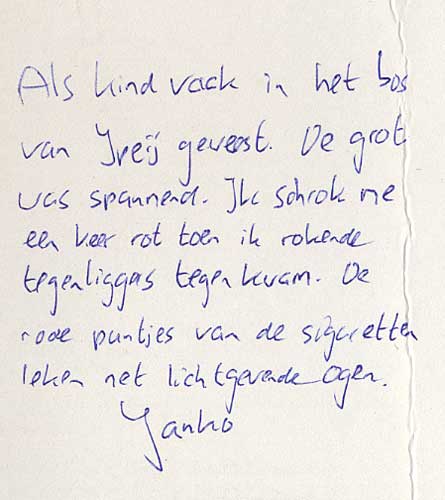 Als kind vaak in het bos
van Ypeij geweest. De grot
was spannend. Ik schrok me
een keer rot toen ik rokende
tegenliggers tegen kwam. De
rode puntjes van de sigaretten
leken net lichtgevende ogen.
Yanko